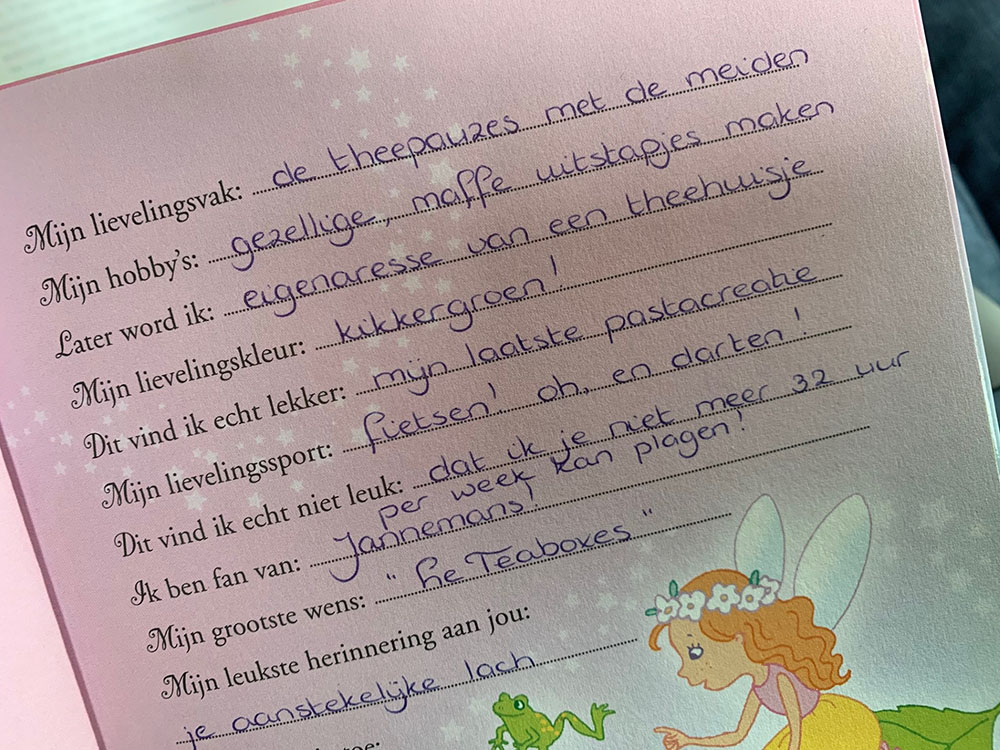 Mijn lievelingsvak: de theepauzes met de meiden
Mijn hobby's: gezellige, maffe uitstapjes maken
Later word ik: eigenaresse van een theehuisje
Mijn lievelingskleur: kikkergroen!
Dit vind ik echt lekker: mijn laatste pastacreatie
Mijn lievelingssport: fietsen! oh, en darten!
Dit vind ik echt niet leuk: dat ik je niet meer 32 uur
per week kan plagen!
Ik ben fan van: Jannemans!
Mijn grootste wens: "heTeaboxes"
Mijn leukste herinnering aan jou:
je aanstekelijke lach